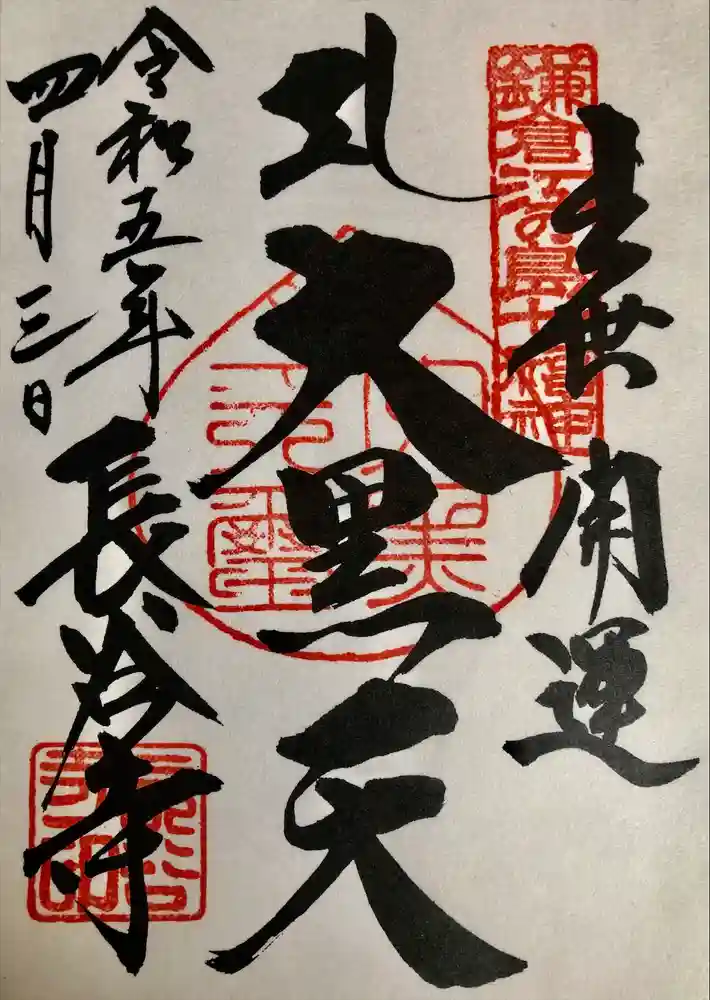 鎌倉江の島七福神
世開運
大黒天
令和五年
四月三日
長谷寺